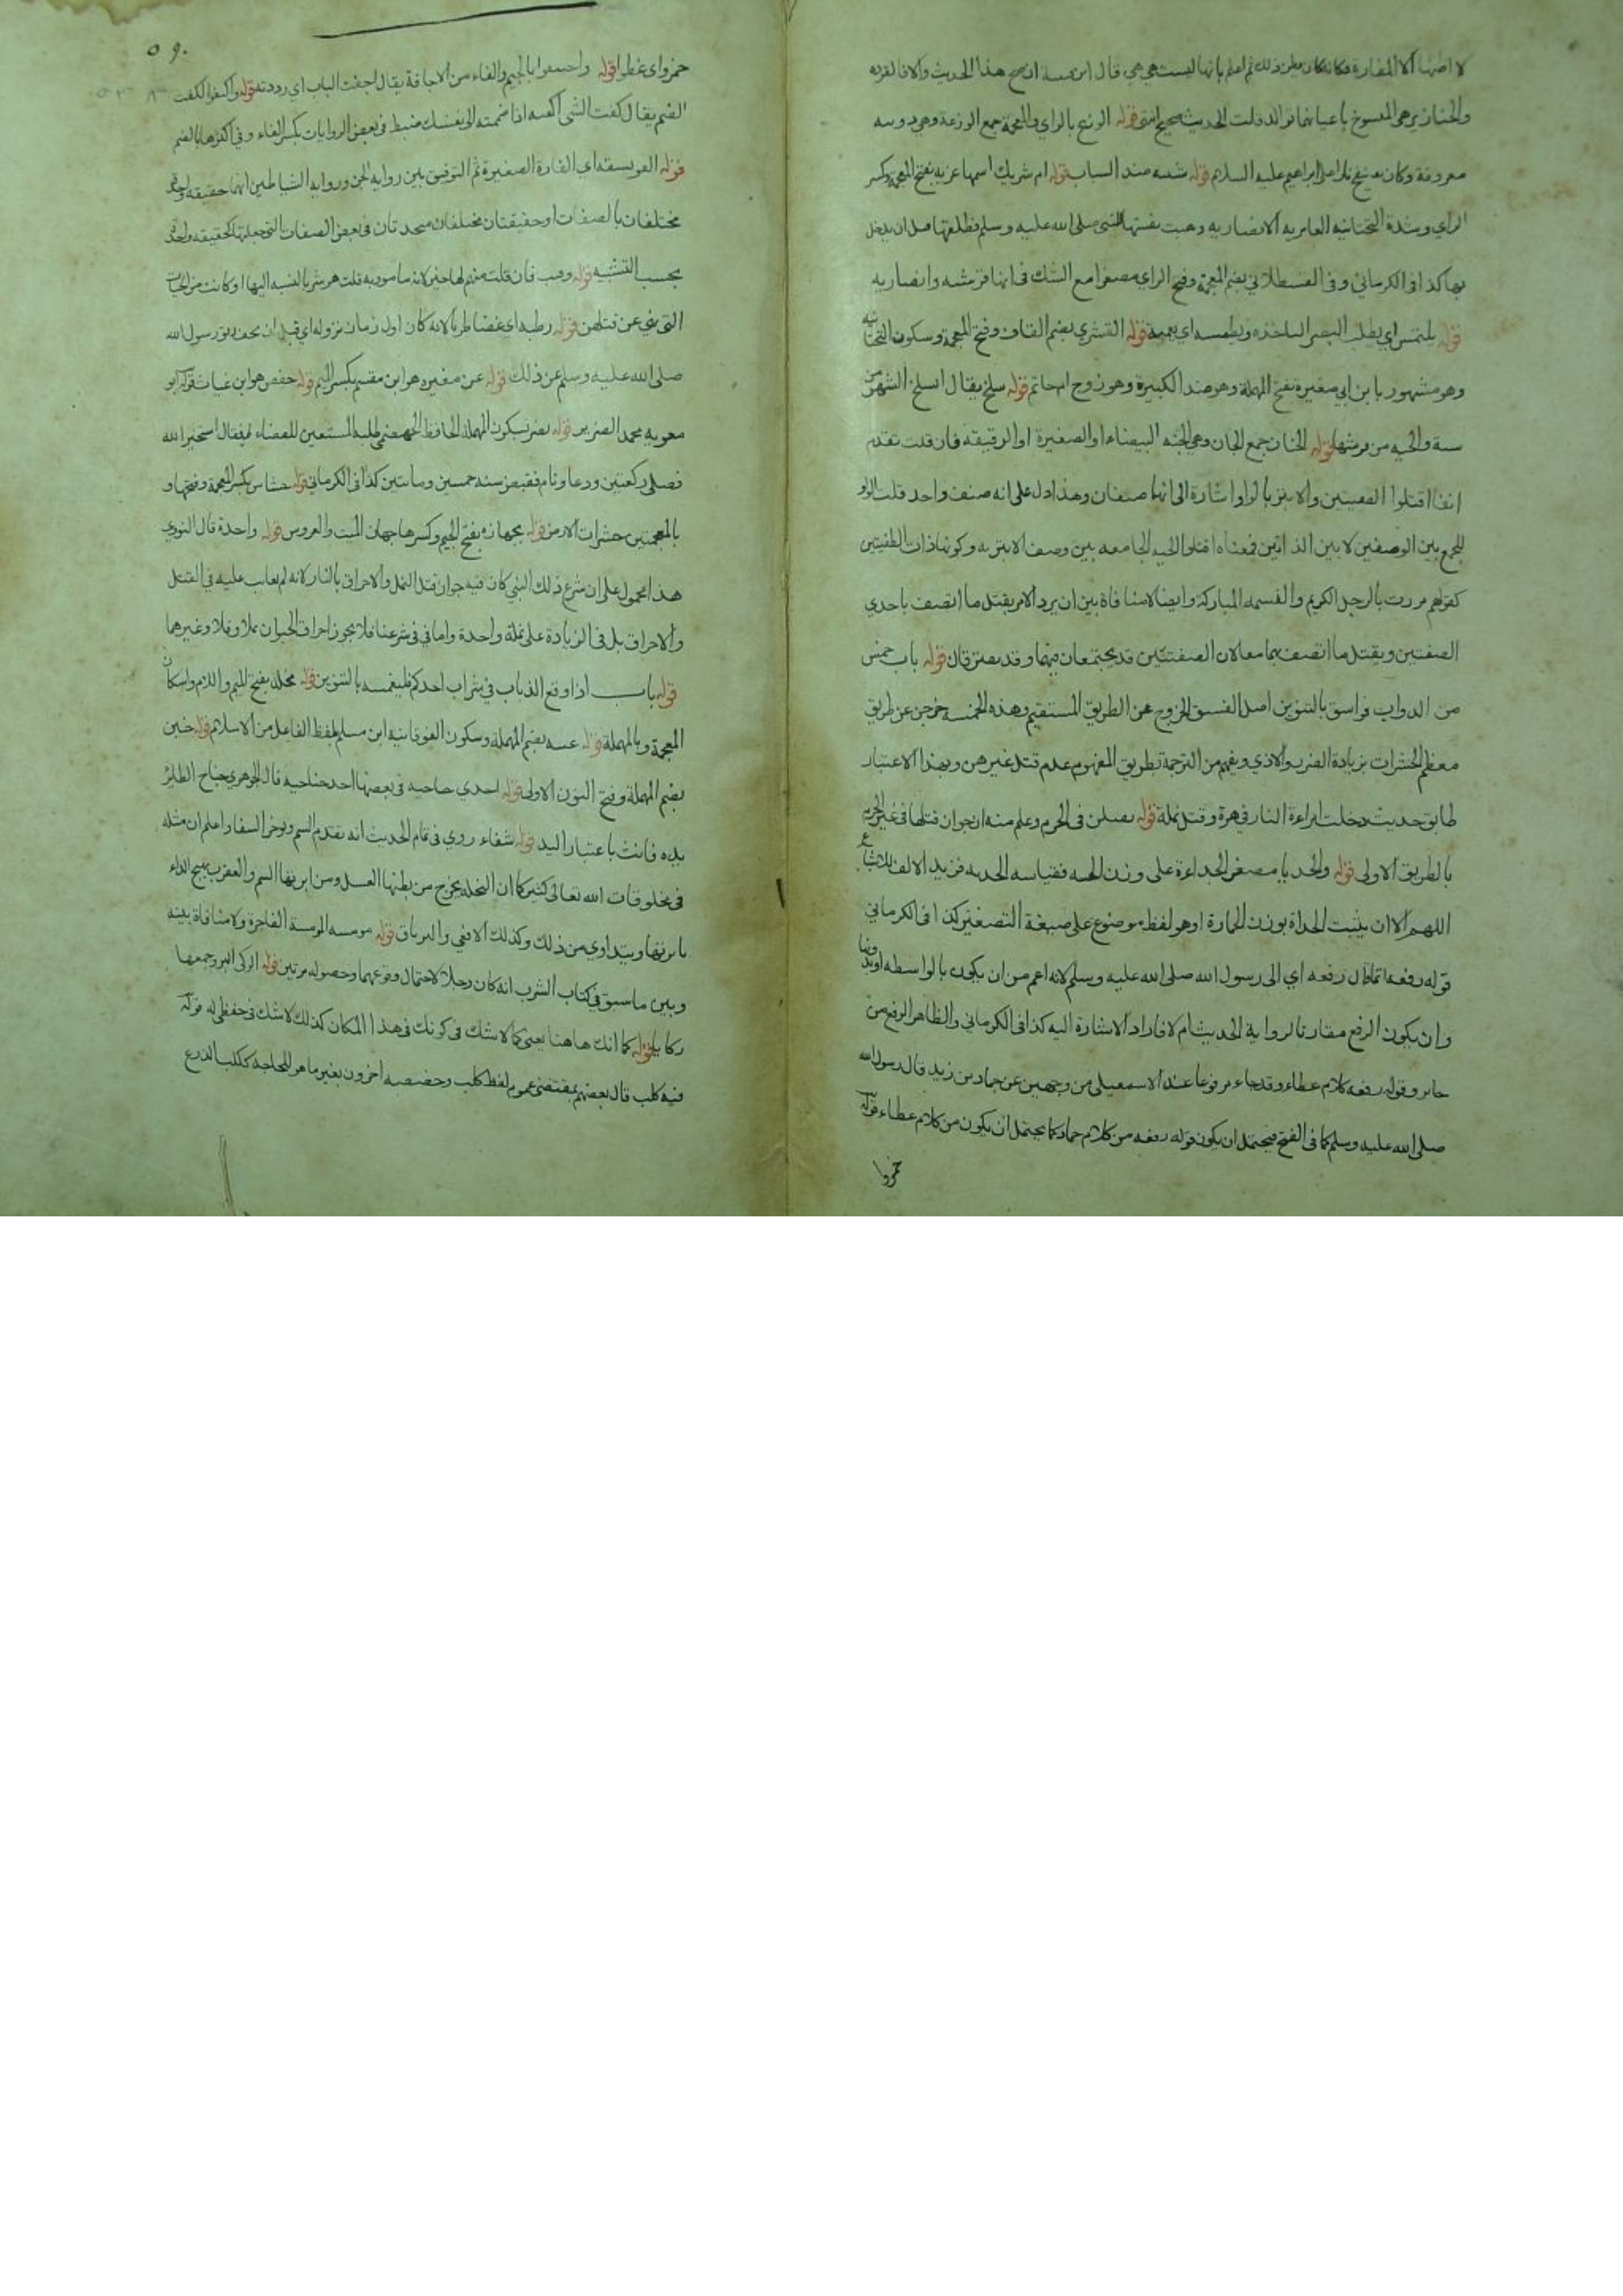 لا اظنها الا الفارة فكانه كان يظن ذلك ثم اعلم بانها ليست هي هي قال ابن قتيبة ان صح هذا الحديث والا فالقردة
والخنازير هي المسوخ باعيانها توالدت قلت الحديث صحيح انتهى قوله الوزغ بالزاي والمعجمة جمع الوزغة وهي دويبه
معروفة وكان ينفخ نار ابراهيم عليه السلام قوله شيبه ضد الشباب قوله ام شريك اسمها غزيه بفتح المعجمة وكسر
الزاي وشدة التحتانيه العامريه الانصاريه وهبت نفسها للنبي صلى الله عليه وسلم فطلقها قبل ان يدخل
بها كذا في الكرماني وفي القسطلاني بضم المعجمة وفتح الزاي مصغرا مع الشك في انها قرشيه وانصاريه
قوله يلتمس اي يطلب البصر لياخذه ويطمسه اي يعميه قوله القشيري بضم القاف وفتح المعجمة وسكون التحتانيه
وهو مشهور بابن ابي صغيرة بفتح المهملة وهو ضد الكبيرة وهو زوج ام حاتم قوله سلخ يقال انسلخ الشهر من
سنة والحيه من قرشها قوله الجنان جمع الجان وهي الحيه البيضاء او الصغيرة او الرقيقه فان قلت تقدم
انفا اقتلوا الطفيتين والابتر بالواو اشارة الى انها صنفان وهذا دل على انه صنف واحد قلت الواو
للجمع بين الوصفين لا بين الذاتين فمعناه اقتلوا الحيه الجامعه بين وصف الابتريه وكونها ذات الطفيتين
كقولهم مررت بالرجل الكريم والنسمه المباركة وايضا لا منافاة بين ان يرد الامر بقتل ما اتصف باحدي
الصفتين وبقتل ما اتصف بهما معا لان الصفتين قد يجتمعان فيها وقد يفترقان قوله باب خمس
من الدواب فواسق بالتنوين اصل الفسق الخروج عن الطريق المستقيم وهذه الخمسه خرجن عن طريق
معظم الحشرات بزيادة الضرر والاذي ويفهم من الترجمة بطريق المفهوم عدم قتل غيرهن وبهذا الاعتبار
طابق حديث دخلت امراءة النار في هرة وقتل نملة قوله يقتلن في الحرم وعلم منه ان جواز قتلها في غير الحرم
بالطريق الاولى قوله والحديا مصغر الحداءة على وزن العنبه فقياسه الحديه فزيد الالف للاشباع
اللهم الا ان يثبت الحداة بوزن الحمارة او هو لفظ موضوع على صيغة التصغير كذا في الكرماني
قوله رفعه انما قال رفعه اي الى رسول الله صلى الله عليه وسلم لانه اعم من ان يكون بالواسطه او بدونها
وان يكون الرفع مقارنا لرواية الحديث ام لا فاراد الاشارة اليه كذا في الكرماني والظاهر الرفع من
جابر وقوله رفعه كلام عطاء وقد جاء مرفوعا عند الاسمعيلي من وجهين عن حماد بن زيد قال رسول الله
صلى الله عليه وسلم كما في الفتح فيحتمل ان يكون قوله رفعه من كلام حماد كما يحتمل ان يكون من كلام عطاء قوله
خمروا
٥٩٠
خمروا اي غطوا قوله واجيفوا بالجيم والفاء من الاجافة يقال اجفت الباب اي رددته قوله واكفتوا الكفت
الضم يقال كفت الشي اكفته اذا ضممته الى نفسك ضبط في بعض الروايات بكسر الفاء وفي اكثرها بالضم
قوله الفويسقه اي الفارة الصغيرة ثم التوفيق بين روايه الجن وروايه الشياطين انهما حقيقه واحدة
مختلفان بالصفات او حقيقتان مختلفان متحدتان في بعض الصفات التي جعلتها كحقيقه واحدة
بحسب التشبيه قوله وهب فان قلت قتلهم لها خير لانه مامور به قلت هو شر بالنسبه اليها او كانت من الحيات
التي نهي عن قتلهن قوله رطبه اي غضا طريا لانه كان اول زمان نزوله اي قبل ان يجف ريق رسول الله
صلى الله عليه وسلم عن ذلك قوله عن مغيره هو ابن مقسم بكسر الميم قوله حفص هو ابن غياث قوله ابو
معويه محمد الضرير قوله نصر بسكون المهملة الحافظ الجهضمي طلبه المستعين للقضاء فقال استخير الله
فصلى ركعتين ودعا ونام فقبض سنه خمسين ومايتين كذا في الكرماني قوله خشاش بكسر المعجمة وفتحها و
بالمعجمتين حشرات الارض قوله بجهازه بفتح الجيم وكسرها جهاز الميت والعروس قوله واحدة قال النووي
هذا محمول على ان شرع ذلك النبي كان فيه جواز قتل النمل والاحراق بالنار لانه لم يعاب عليه في القتل
والاحراق بل في الزيادة على نملة واحدة واما في شرعنا فلا يجوز احراق الحيوان نملا وقملا وغيرهما
قوله باب اذا وقع الذباب في شراب احدكم فليغمسه بالتنوين قوله مخلد بفتح الميم واللام واسكان
المعجمة وبالمهملة قوله عتبه بضم المهملة وسكون الفوقانيه ابن مسلم بلفظ الفاعل من الاسلام قوله حنين
بضم المهملة وفتح النون الاولى قوله احدي جناحيه في بعضها احد جناحيه قال الجوهري جناح الطائر
يده فانث باعتبار اليد قوله شفاء روي في تمام الحديث انه يقدم السم ويوخر الشفا واعلم ان مثله
في مخلوقات الله تعالى كثير كما ان النحلة يخرج من بطنها العسل ومن ابرتها السم والعقرب يهيج الداء
بابرتها ويتداوي من ذلك وكذلك الافعي والترياق قوله مومسه المومسة الفاجرة ولا منافاة بينه
وبين ما سبق في كتاب الشرب انه كان رجلا لاحتمال وقوعهما وحصوله مرتين قوله الركى البير وجمعها
ركايا قوله كما انك هاهنا يعني كما لا شك في كونك في هذا المكان كذلك لا شك في حفظى له قوله
فيه كلب قال بعضهم بمقتضى عموم لفظ كلب وخصصه اخرون بغير ما هو للحاجة ككلب الزرع